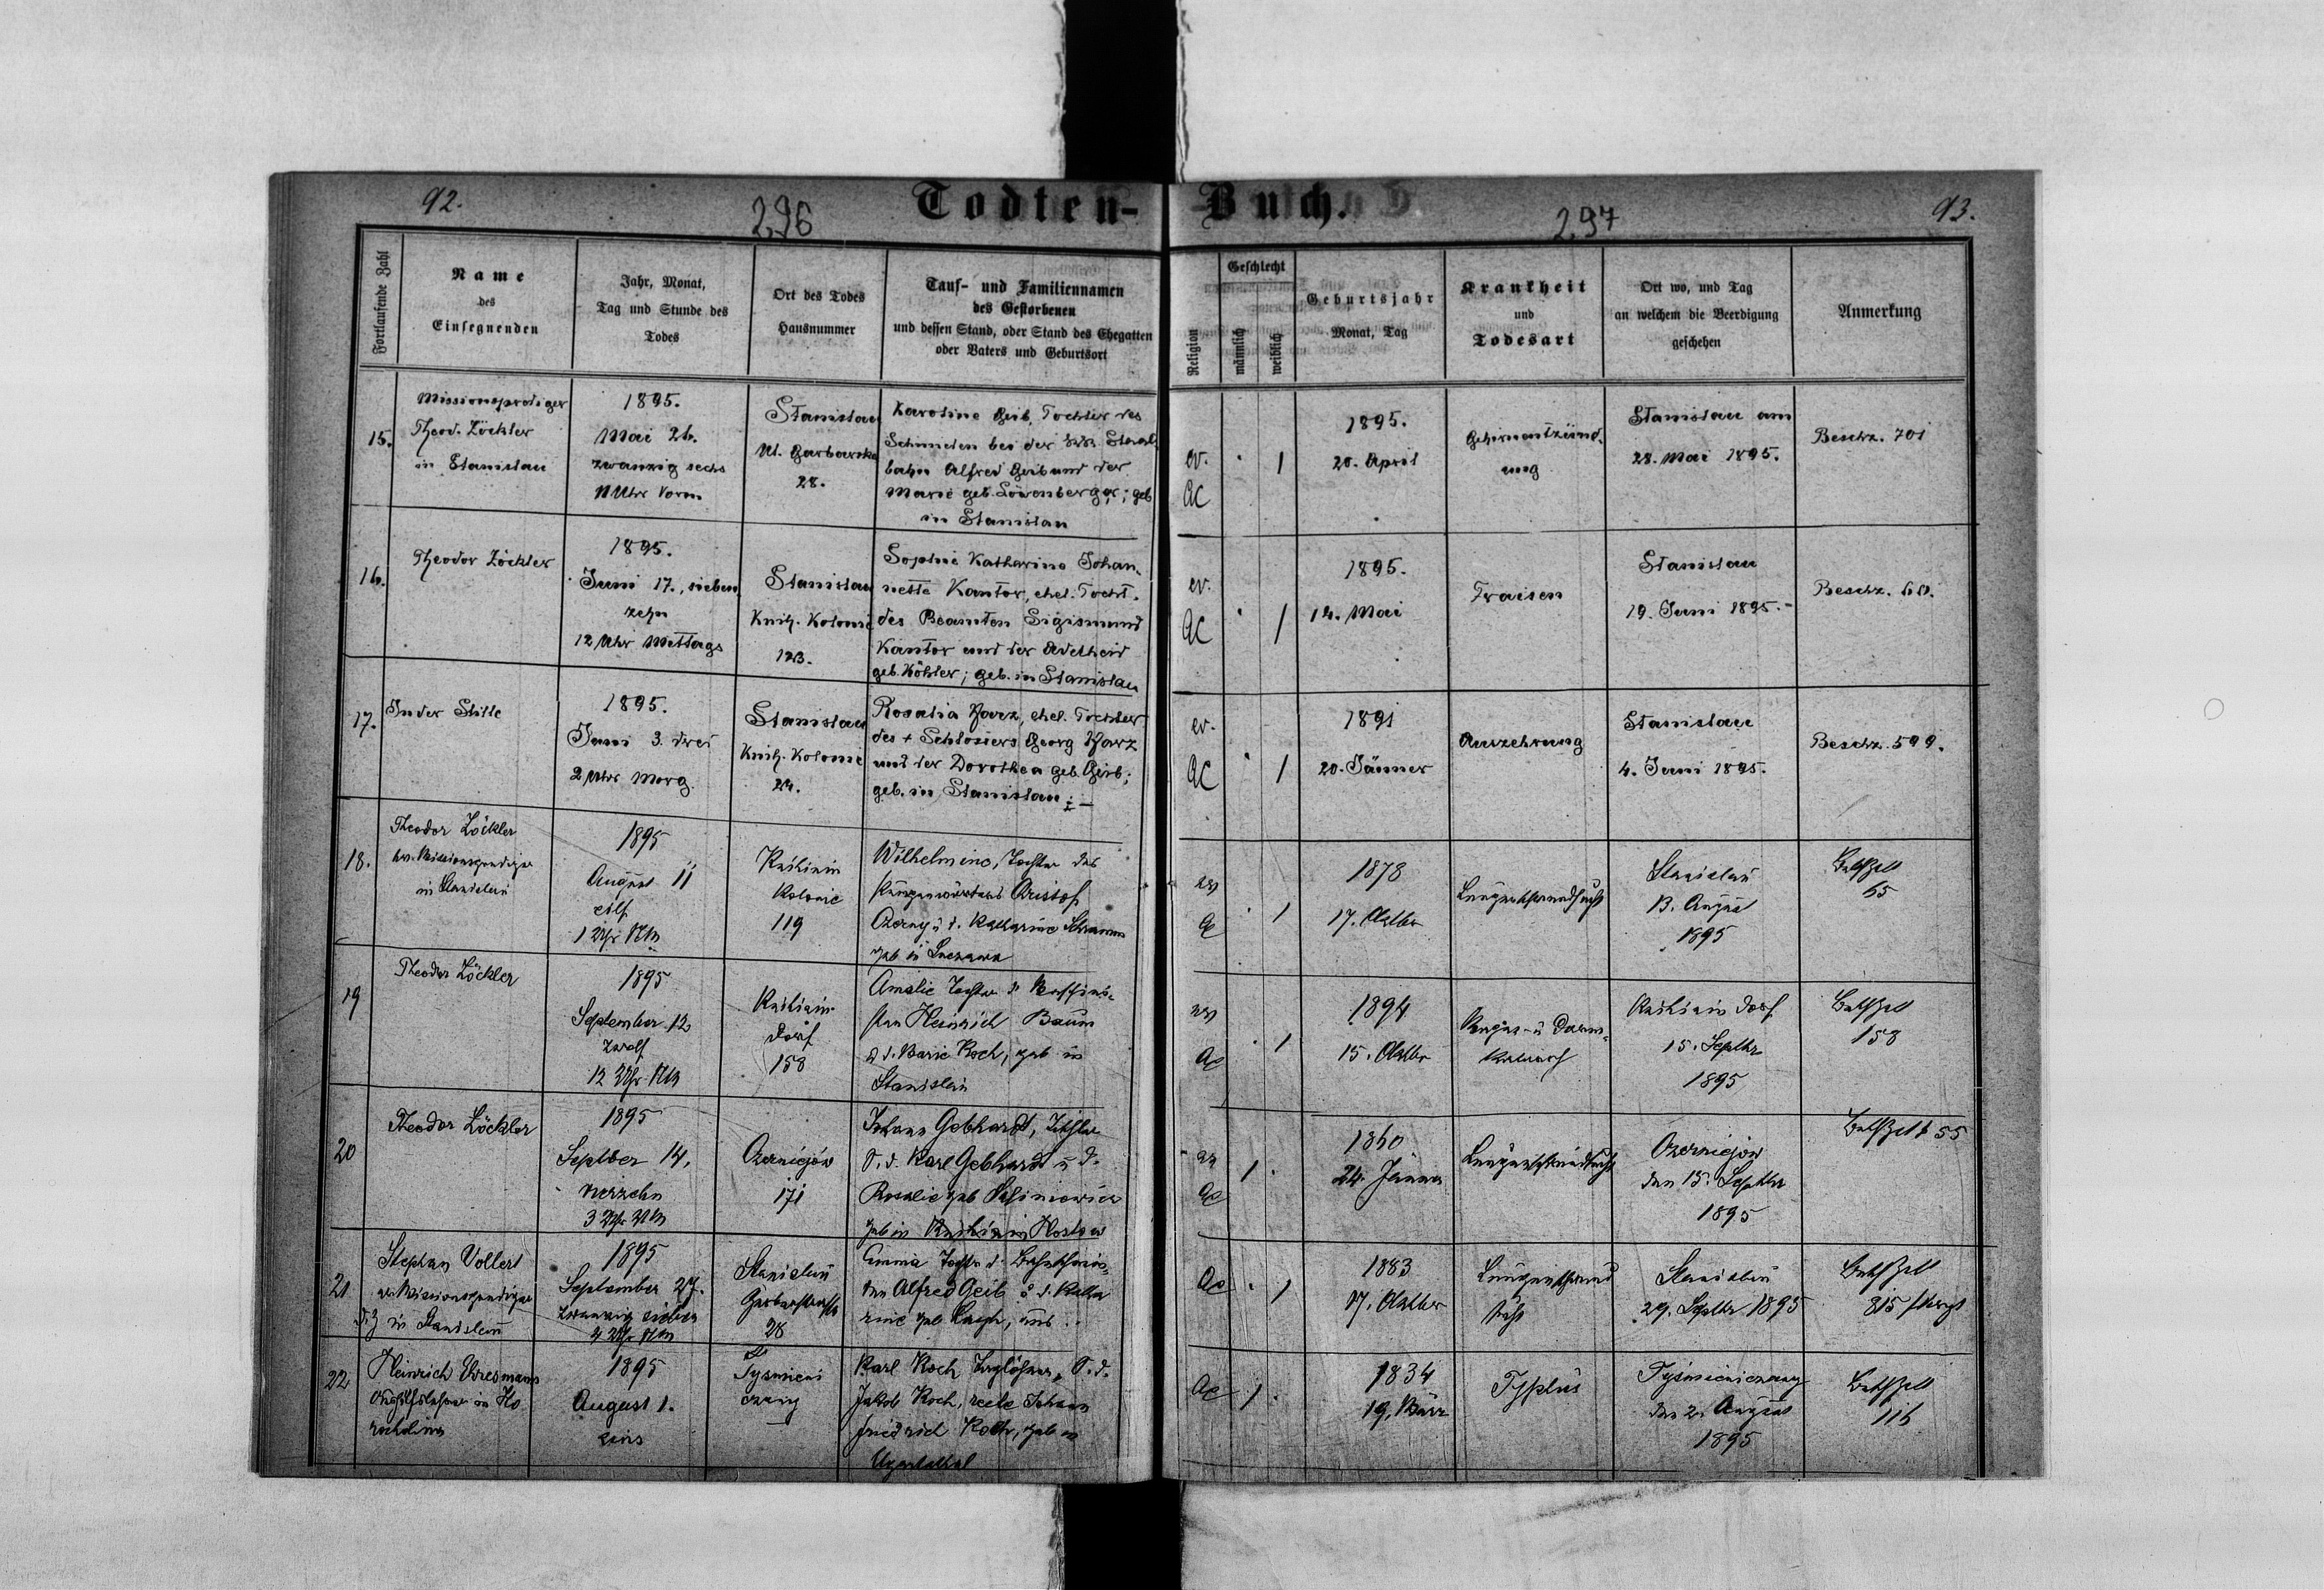 92.
296
Todten-
Buch.
297
93.
Fortlaufende Zahl
Name
des
Einsegnenden
Jahr, Monat,
Tag und Stunde des
Todes
Ort des Todes
Hausnummer
Tauf- und Familiennamen
des Gestorbenen
und dessen Stand, oder Stand des Ehegatten
oder Vaters und Geburtsort
Religion
Geschlecht
männlich
weiblich
Geburtsjahr
Monat, Tag
Krankheit
und
Todesart
Ort wo, und Tag
an welchem die Beerdigung
geschehen
Anmerkung
15.
Missionsprediger
Theod. Zöckler
in Stanislau
1895.
Mai 26.
zwanzig sechs
11 Uhr Vorm
Stanislau
Ul. Garbarska
28.
Karoline Geib, Tochter des
bei der
bahn Alfred Geib und der
Marie geb. Löwenberger; geb
in Stanislau
ev.
AC
1
1895.
20. April
Gehirnentzünd.
ung
Stanislau am
28. Mai 1895.
Beschz. 701
16.
Theodor Zöckler
1895.
Juni 17., sieben
zehn
12 Uhr Mittags
Stanislau
Knih. Kolonie
123.
Sophie Katharina Johan-
nette Kantor, ehel. Tocht.
des Beamten Sigismund
Kantor und der Adelheid
geb. Köhler; geb. in Stanislau
ev.
AC
1
1895.
14. Mai
Fraisen
Stanislau
19. Juni 1895.-
Beschz. 60.
17.
In der Stille
1895.
Juni 3. drei
2 Uhr Morg.
Stanislau
Knih. Kolonie
24.
Rosalia Harz, ehel. Tochter
des + Schlossers Georg Harz
und der Dorothea geb. Geib;
geb. in Stanislau
ev.
AC
1
1891
20. Jänner
Auszehrung
Stanislau
4. Juni 1895.
Beschz. 599.
18.
Theodor Zöckler
ev. Missionsprediger
in Stanislau
1895
August 11
eilf
1 Uhr NM
Knihinin
Kolonie
119
Wilhelmine, Tochter des
Christof
Czerny u d. Katharine Schramm
geb in
ev
AC
1
1878
17. Oktbr
Lungenschwindsucht
Stanislau
13. August
1895
Beschzett
65
19
Theodor Zöckler
1895
September 12
zwölf
12 Uhr NM
Knihinin
Dorf
158
Amalie Tochter d
Heinrich Baum
u d. Marie Koch, geb in
Stanislau
ev
AC
1
1894
15. Oktbr
Magen- u Darm-
katarrh
Knihinin Dorf
15. Septbr
1895
Beschzett
158
20
Theodor Zöckler
1895
Septber 14.
vierzehn
3 Uhr NM
Czerniejów
171
Johann Gebhardt, Tischler
S. d. Karl Gebhardt u d.
Rosalie geb
geb in
ev
AC
1
1860
24. Jänner
Lungenschwindsucht
Czerniejow
den 15. Septbr
1895
Beschzett 55
21
Stephan Vollert
ev. Missionsprediger
d. Z in Stanislau
1895
September 27.
zwanzig sieben
4 Uhr NM
Stanislau
Garberstrasse
28
Emma Tochter d.
den Alfred Geib u d. Katha
rine geb
AC
1
1883
17. Oktber
Lungenschwind
sucht
Stanislau
29. Septbr 1895
Beschzett
815
22
Heinrich Ehresmann
in Ho
rocholina
1895
August 1.
eins
Tysmieni
czany
Karl Koch Taglöhner, S. d.
Jakob Koch, recte Johann
Friedrich Koch, geb in
Ugartsthal
AC
1
1834
19. März
Typhus
Tysmieniczany
den 2. August
1895
Beschzett
116